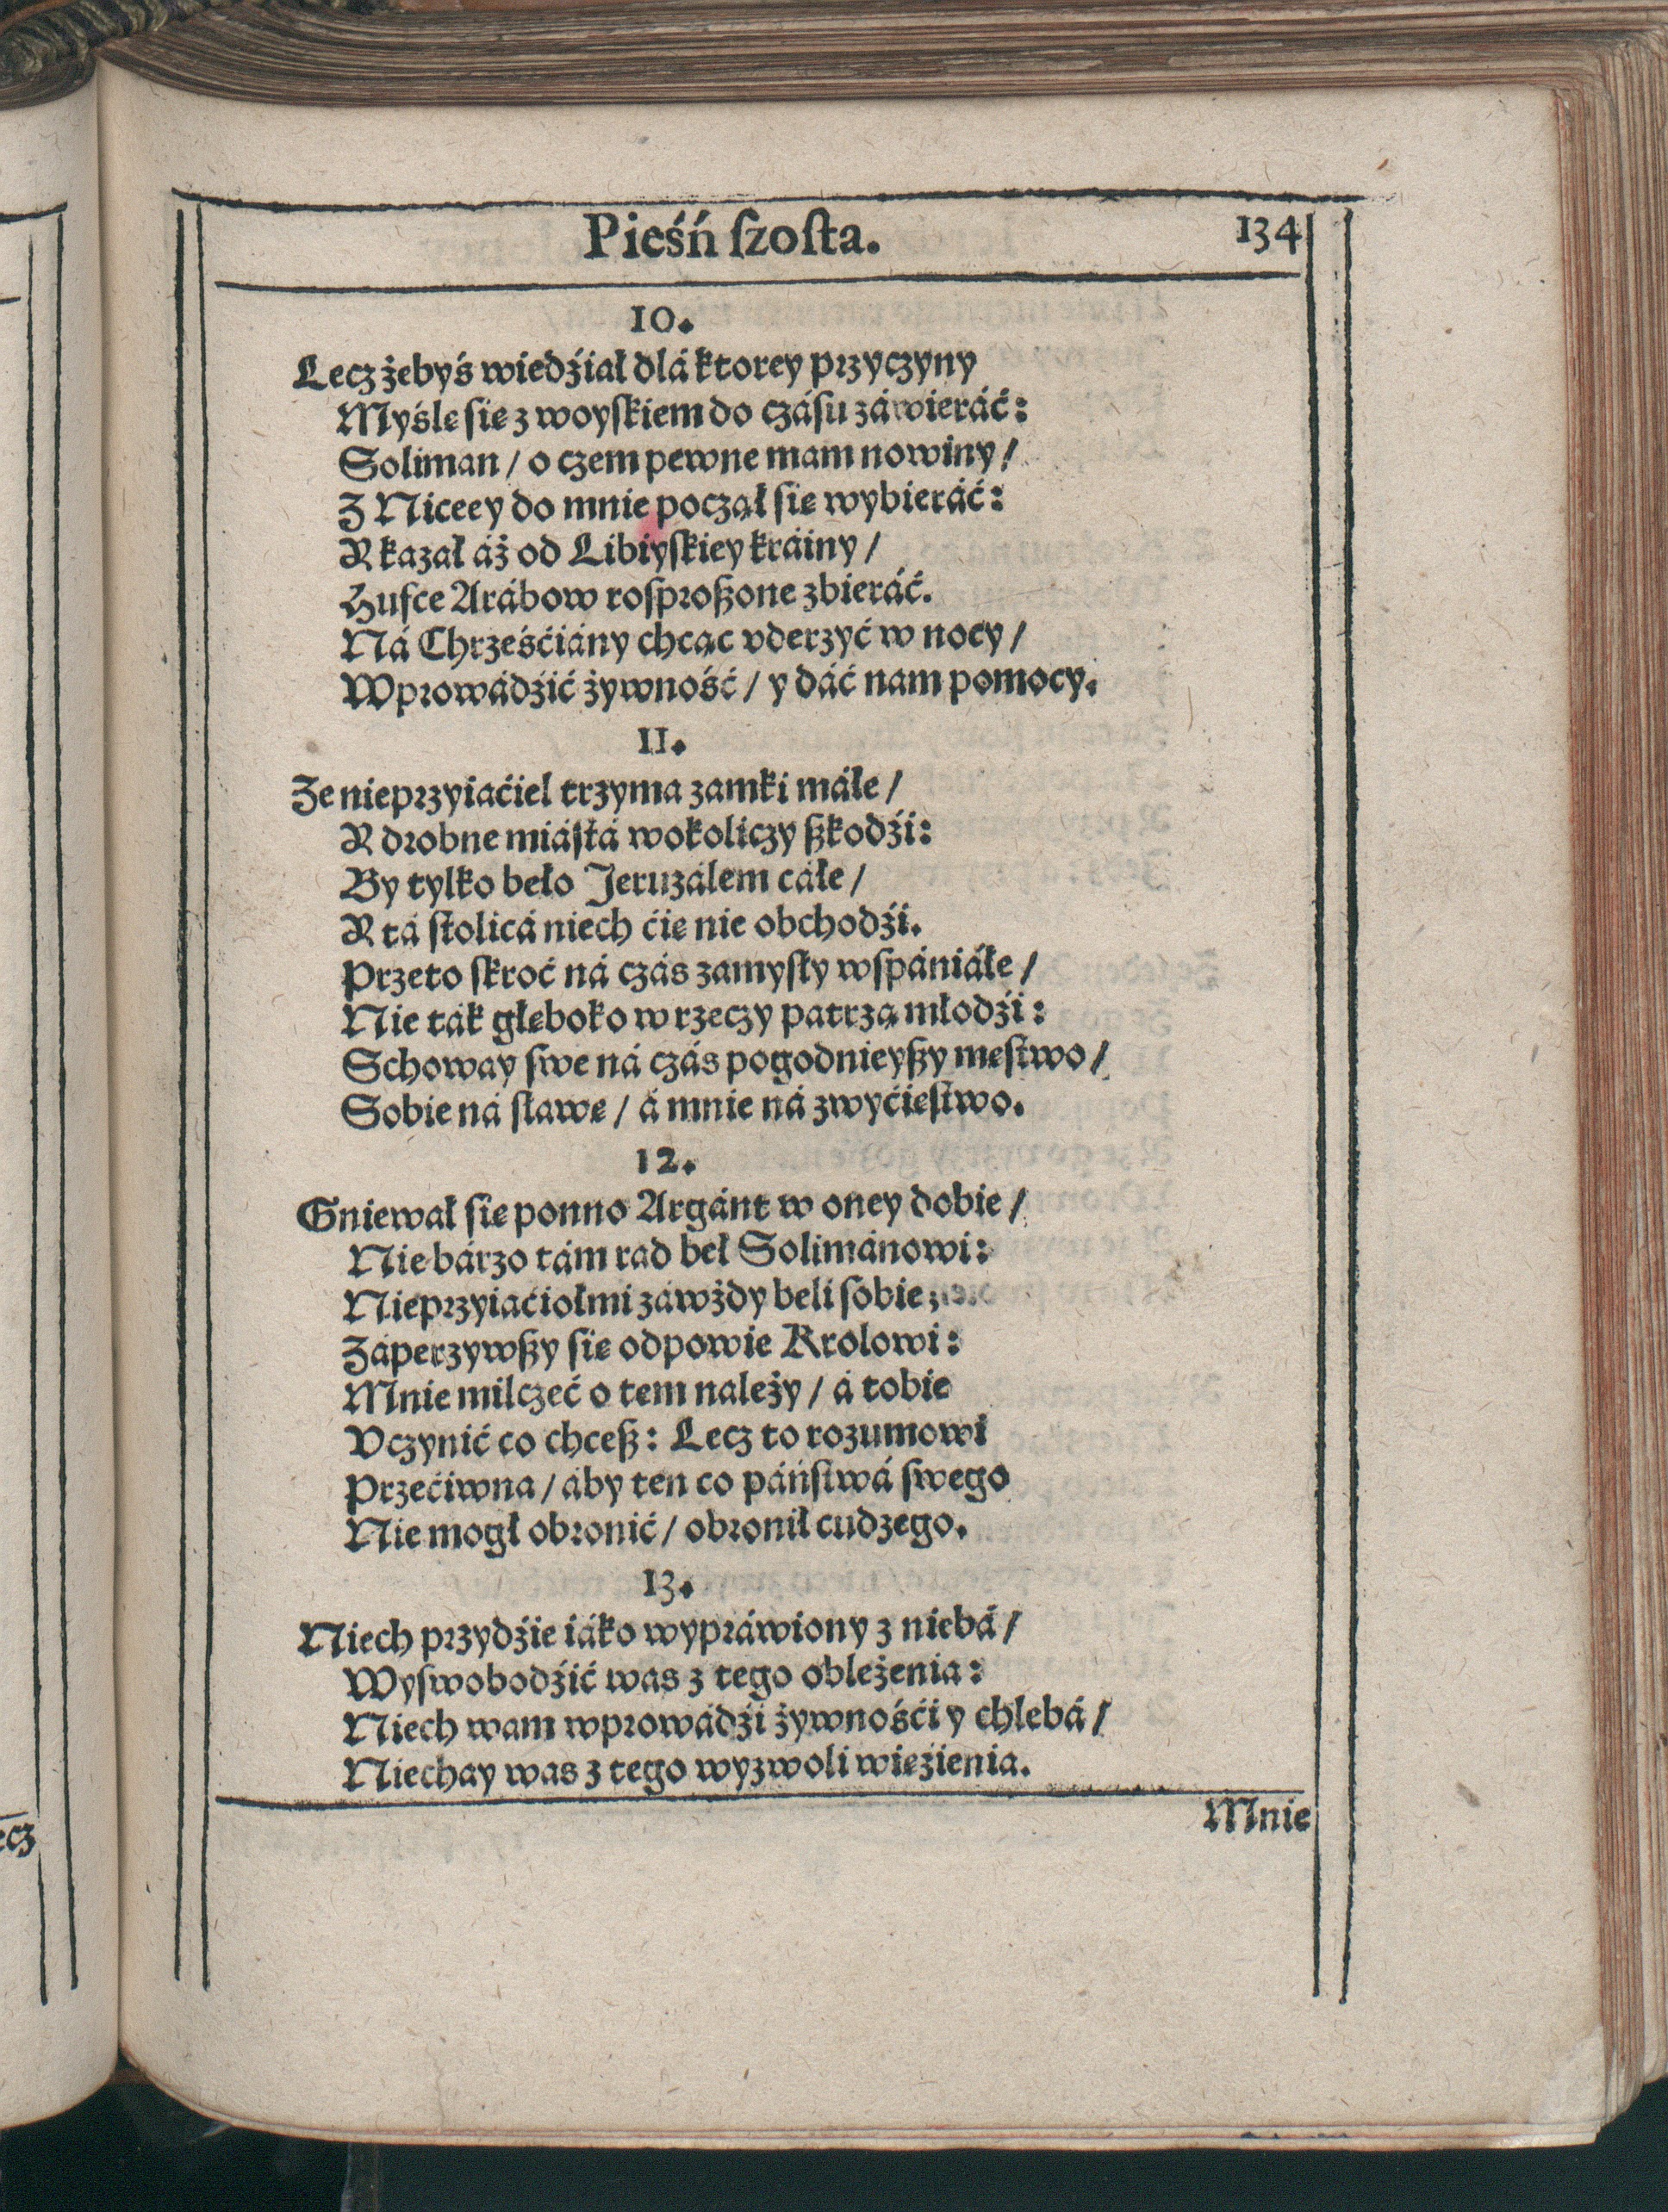 Pieśń ſzoſta.
134
10.
Lecz żebyś wiedźiał dlá ktorey przyczyny
Myślę się z woyſkiem do czáſu záwieráć:
Soliman / o czem pewne mam nowiny /
Z Niceey do mnie począł ſię wybieráć:
A kazał áż od Libiyſkiey kráiny /
Hufce Arábow roſproßone zbieráć.
Ná Chrześćiány chcąc vderzyć w nocy /
Wprowádźić żywność / y dáć nam pomocy.
11.
Że nieprzyiaćiel trzyma zamki máłe /
A drobne miáſtá wokoliczy ßkodźi:
By tylko beło Jeruzálem cáłe /
A tá ſtolicá niech ćię nie obchodźi.
Przeto ſkroć ná czás zamyſły wſpániáłe /
Nie ták głęboko w rzeczy patrzą młodźi:
Schoway ſwe ná czás pogodnieyßy męſtwo /
Sobie ná ſławę / á mnie ná zwyćięſtwo.
12.
Gniewał ſię ponno Argánt w oney dobie /
Nie bárzo tám rad beł Solimánowi:
Nieprzyiaćiołmi záwżdy beli ſobie;
Záperzywßy ſię odpowie Krolowi:
Mnie milczeć o tem należy / á tobie
Vczynić co chceß: Lecz to rozumowi
Przećiwna / áby ten co páńſtwá ſwego
Nie mogł obronić / obronił cudzego.
13.
Niech przydźie iáko wypráwiony z niebá /
Wyſwobodźić was z tego oblężenia:
Niech wam wprowádźi żywnośći y chlebá /
Niechay was z tego wyzwoli więźienia.
Mnie
ecz